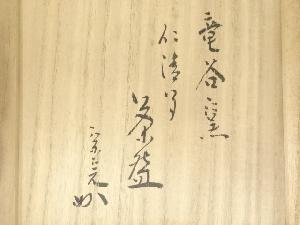 竜谷窯
仁清写
茶碗